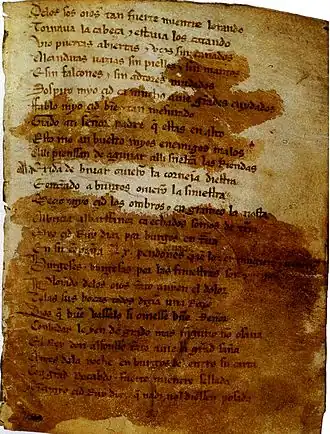 Delos sos oios tan fuerte mientre lorando
Tornaua la cabeça y estaua los catando
Vio puertas abiertas e vços sin cañados
Alcandaras uazias sin pielles e sin mantos
E sin falcones e sin adtores mudados
Sospiro myo çid ca mucho auie grandes cuydados
Fablo myo çid bien e tan mesurado
Grado ati señor padre que estas en alto
Esto me an buelto myos enemigos malos
Alli pienssan de aguiiar alli sueltan las Riendas
exida de biuar ouieron la corneia diestra
E entrando a burgos ouieron la siniestra
Meçio myo çid los ombros e engrameo la tiesta
Albricia albarffanez ca echados somos de tierra
Myo çid Ruy diaz por burgos
En su Lx pendones
Burgeses e burgesas por las finiestras son
Plorando delos oios tanto auyen el dolor
Delas sus bocas todos dizian una Razon
Dios que buen vassalo si ouiesse buen Señor
Conbidar le yen de grado mas ninguno non osaua
El Rey don alfonsso tanto auie la grand saña
Antes dela noche en burgos del entro su carta
Con grand Recabdo e fuerte mientre sellada
Que a myo çid Ruy diaz que nadi nol diessen posada